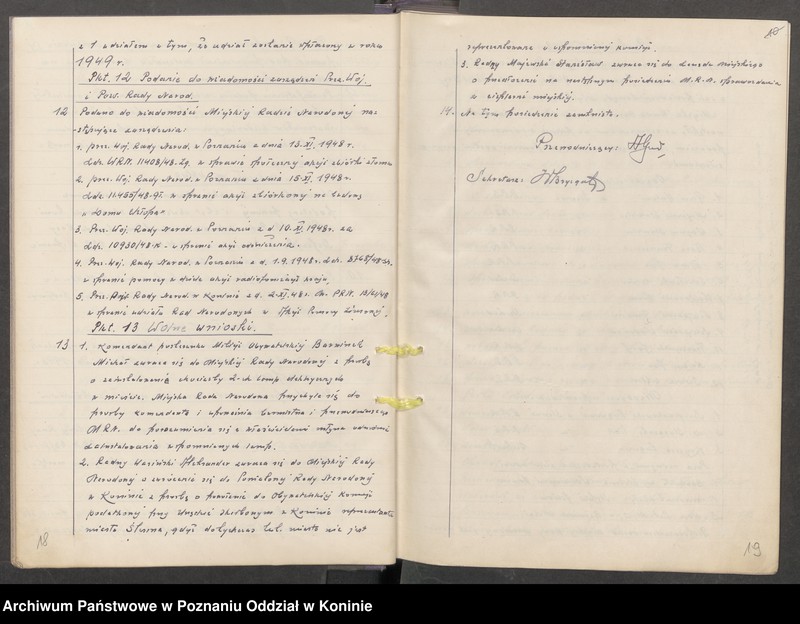 z 1 udziałem z tym, że udział zostanie spłacony w roku
1949 r.
Pkt. 12 Podanie do wiadomości zarządzeń Prez. Woj.
i Pow. Rady Narod.
12 Podano do wiadomości Miejskiej Radzie Narodowej na-
stępujące zarządzenia:
1. Prez. Woj. Rady Narod. w Poznaniu z dnia 13.XI.1948 r.
Ldz. W.R.N. 11408/48. w sprawie społecznej akcji zbiórki złomu
2. Prez. Woj. Rady Narod. w Poznaniu z dnia 15.XI.1948 r.
Ldz. 11455/48 w sprawie akcji zbiórkowej na budowę
"Domu Chłopa"
3. Prez. Woj. Rady Narod. w Poznaniu z d. 10.XI.1948 r. za
Ldz. 10930/48-K - w sprawie akcji
4. Prez. Woj. Rady Narod. w Poznaniu z d. 1.9.1948 r. Ldz. 8765/48
w sprawie pomocy w dziele akcji radiofonizacji kraju,
5. Prez. Pow. Rady Narod. w Koninie z d. 2.XI.48 r. Nr. PRN.
w sprawie udziału Rad Narodowych w Akcji Pomocy Zimowej.
Pkt. 13 Wolne wnioski.
13 1. Komendant posterunku Milicji Obywatelskiej Barwinek
Michał zwraca się do Miejskiej Rady Narodowej z prośbą
o zainstalowanie chociażby 2-ch lamp elektrycznych
w mieście. Miejska Rada Narodowa przychyla się do
prośby komendanta i upoważnia burmistrza i przewodniczącego
M.R.N. do porozumienia się z właścicielami młyna odnośnie
zainstalowania wspomnianych lamp.
2. Radny Aleksander zwraca się do Miejskiej Rady
Narodowej o zwrócenie się do Powiatowej Rady Narodowej
w Koninie z prośbą o powołanie do Obywatelskiej Komisji
podatkowej przy Urzędzie Skarbowym w Koninie reprezentanta
miasta Ślesina, gdyż dotychczas tut. miasto nie jest
18
reprezentowane w wspomnianej komisji.
3. Radny Majewski Stanisław zwraca się do Zarządu Miejskiego
o przedłożenie na następnym posiedzeniu M.R.N. sprawozdania
z miejskiej.
14. Na tym posiedzenie zamknięto.
Przewodniczący:
Sekretarz:
19
Archiwum Państwowe w Poznaniu Oddział w Koninie